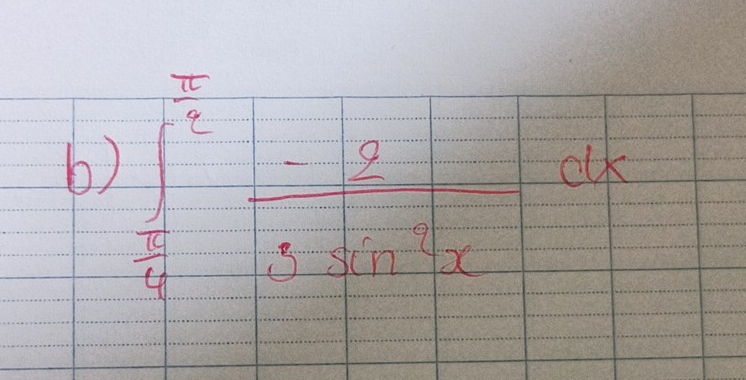 b) ∫_{π/4}^{π/2} \frac{-2}{3 sin²x} dx